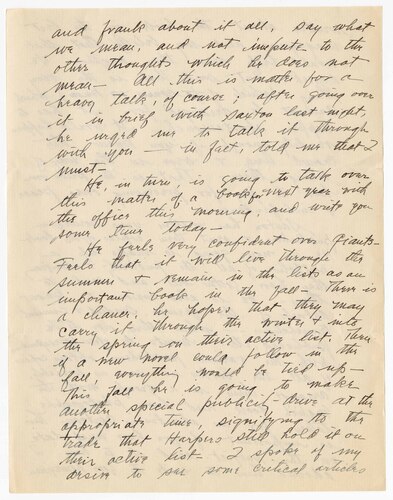 and frank about it all, say what
we mean, and not impute to the
other thoughts which he does not
mean — All this is matter for a
heavy talk, of course; after going over
it in brief with Saxton last night,
he urged me to talk it through
with you — in fact, told me that I
must —
He, in turn, is going to talk over
this matter of a book for next year with
the office this morning, and write you
some time today —
He feels very confident over Giants —
Feels that it will live through the
summer & remain in the lists as an
important book in the fall — There is
a chance, he hopes that they may
carry it through the winter & into
the spring on their active list. Then
if a new novel could follow in the
fall, everything would be tied up —
This fall he is going to make
another special publicity drive at the
appropriate time, signifying to the
trade that Harpers still hold it on
their active list — I spoke of my
desire to see some critical articles